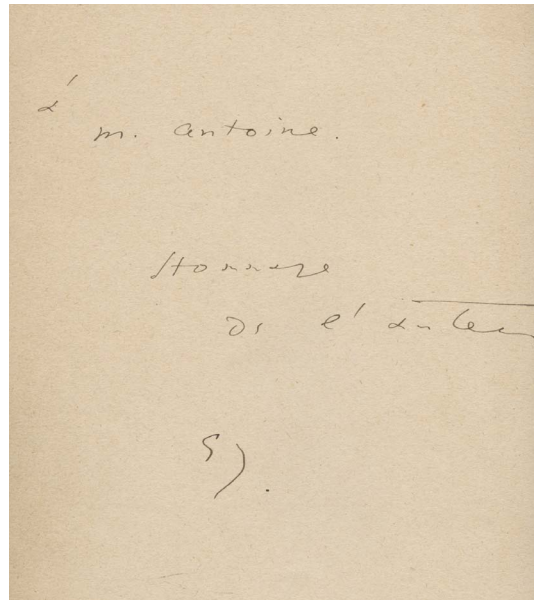 à
m. antoine.
Hommage
de l'auteur